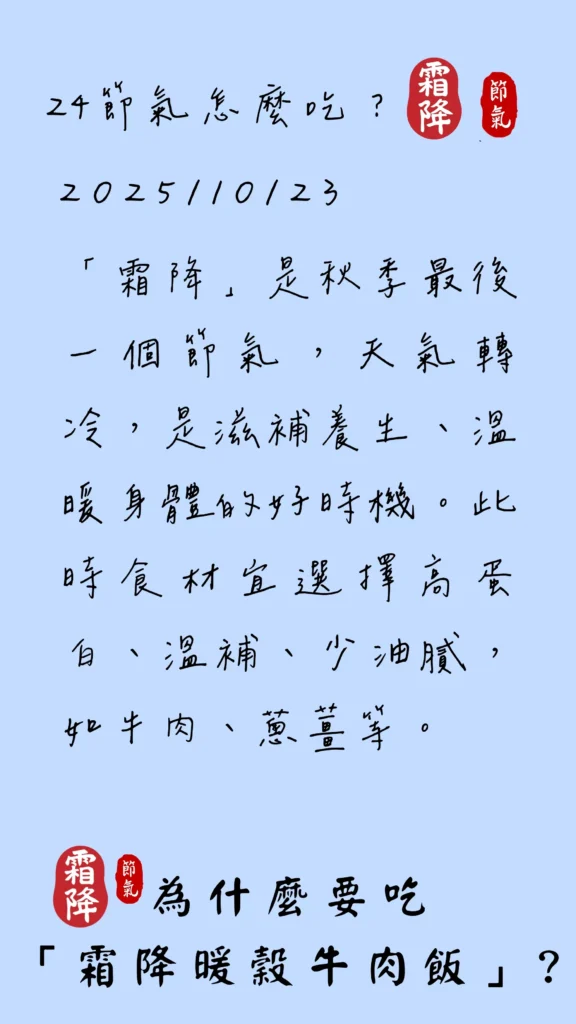 24節氣怎麼吃？
霜降
節氣
2025/10/23
「霜降」是秋季最後
一個節氣，天氣轉
冷，是滋補養生、溫
暖身體的好時機。此
時食材宜選擇高蛋
白、溫補、少油膩，
如牛肉、蔥薑等。
霜降
節氣
為什麼要吃
「霜降暖穀牛肉飯」?